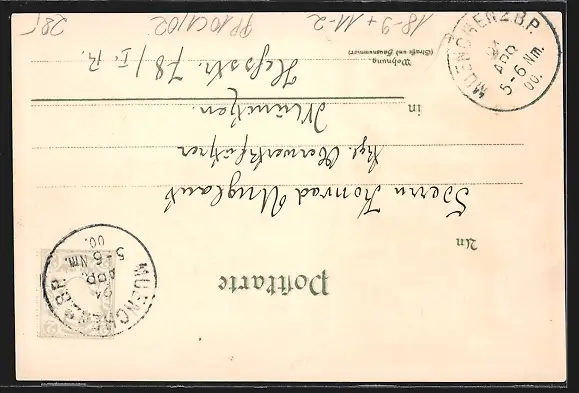 Postkarte
An
Herrn Konrad Unglaub
kgl. Oberwerkführer
in München.
Wohnung
(Straße und Hausnummer)
Hessstr. 78/I. R.
MUENCHEN 2.B.P.
24 APR.
5-6 Nm.
00.
MUENCHEN 2.B.P.
24 APR
5-6 Nm.
00.
18-9 + 11-2